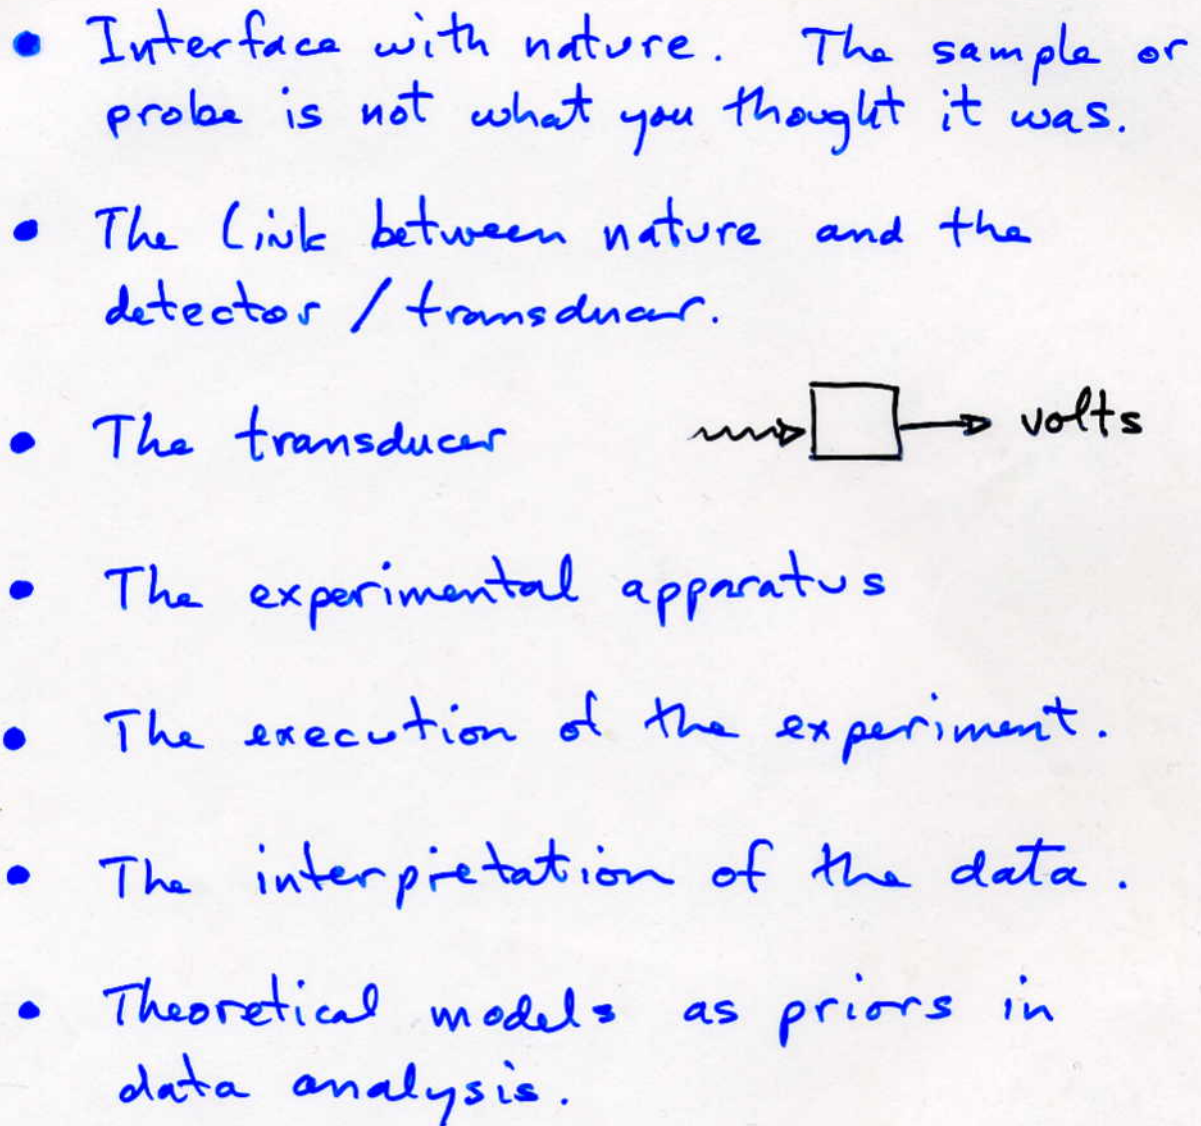 • Interface with nature. The sample or
probe is not what you thought it was.
• The link between nature and the
detector / transducer.
• The transducer volts
• The experimental apparatus
• The execution of the experiment.
• The interpretation of the data.
• Theoretical models as priors in
data analysis.